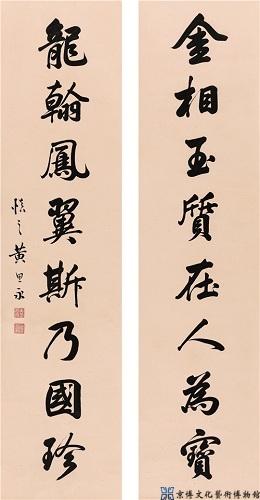 金相玉質在人為寶
龍翰鳳翼斯乃國珍
慎之黃思永
京博文化藝術博物館